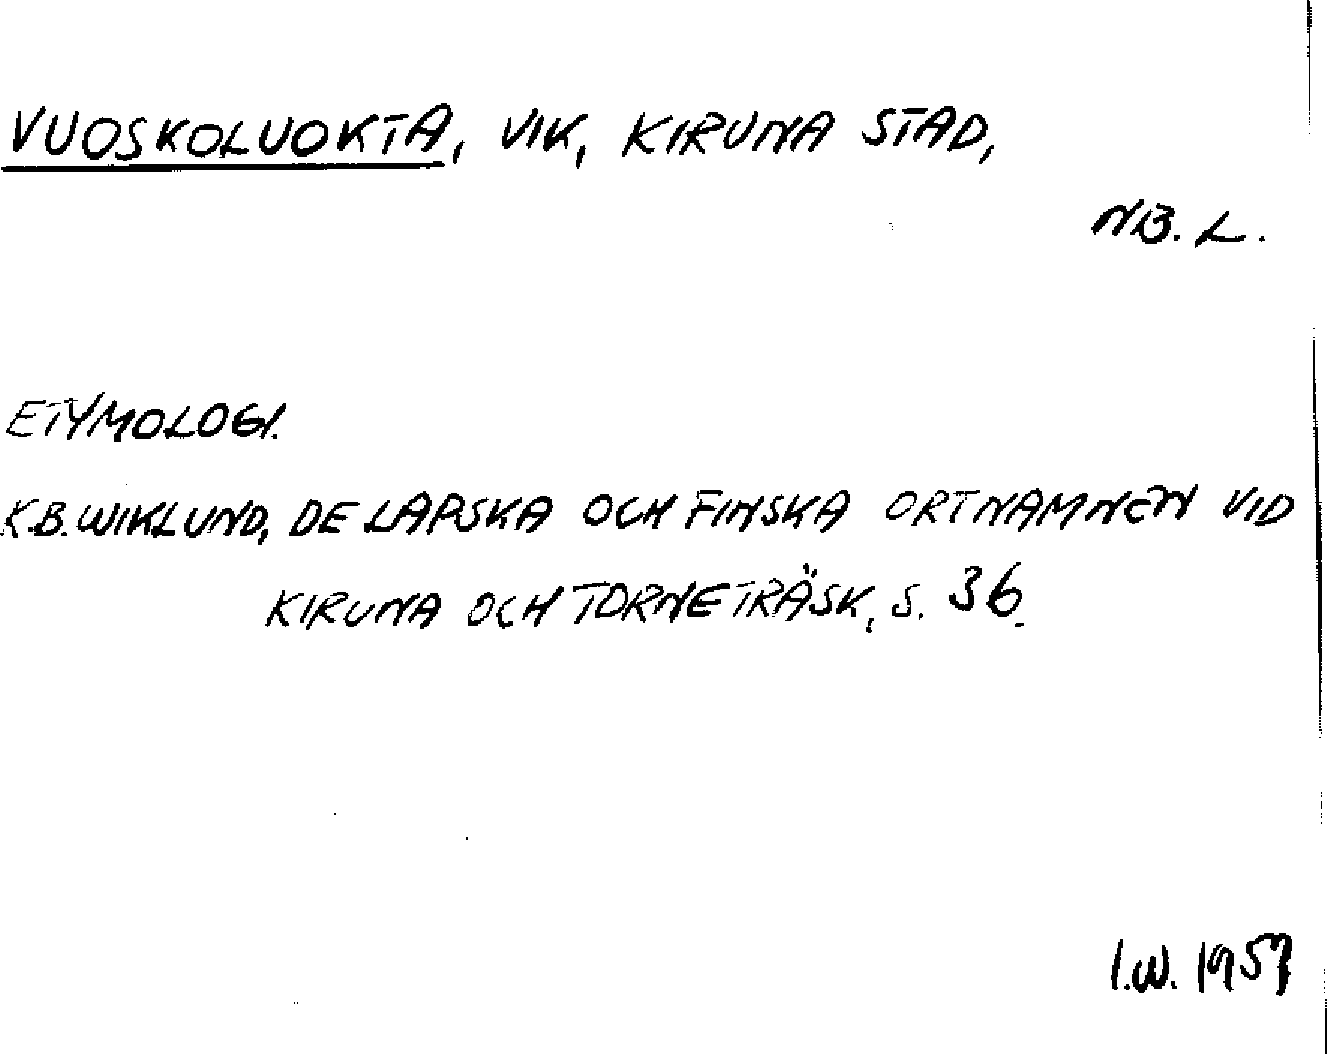 VUOSKOLUOKTA, VIK, KIRUNA STAD,
NB. L.
ETYMOLOGI.
K.B. WIKLUND, DE LAPSKA OCH FINSKA ORTNAMNEN VID
KIRUNA OCH TORNETRÄSK, S. 36.
I.W. 1957